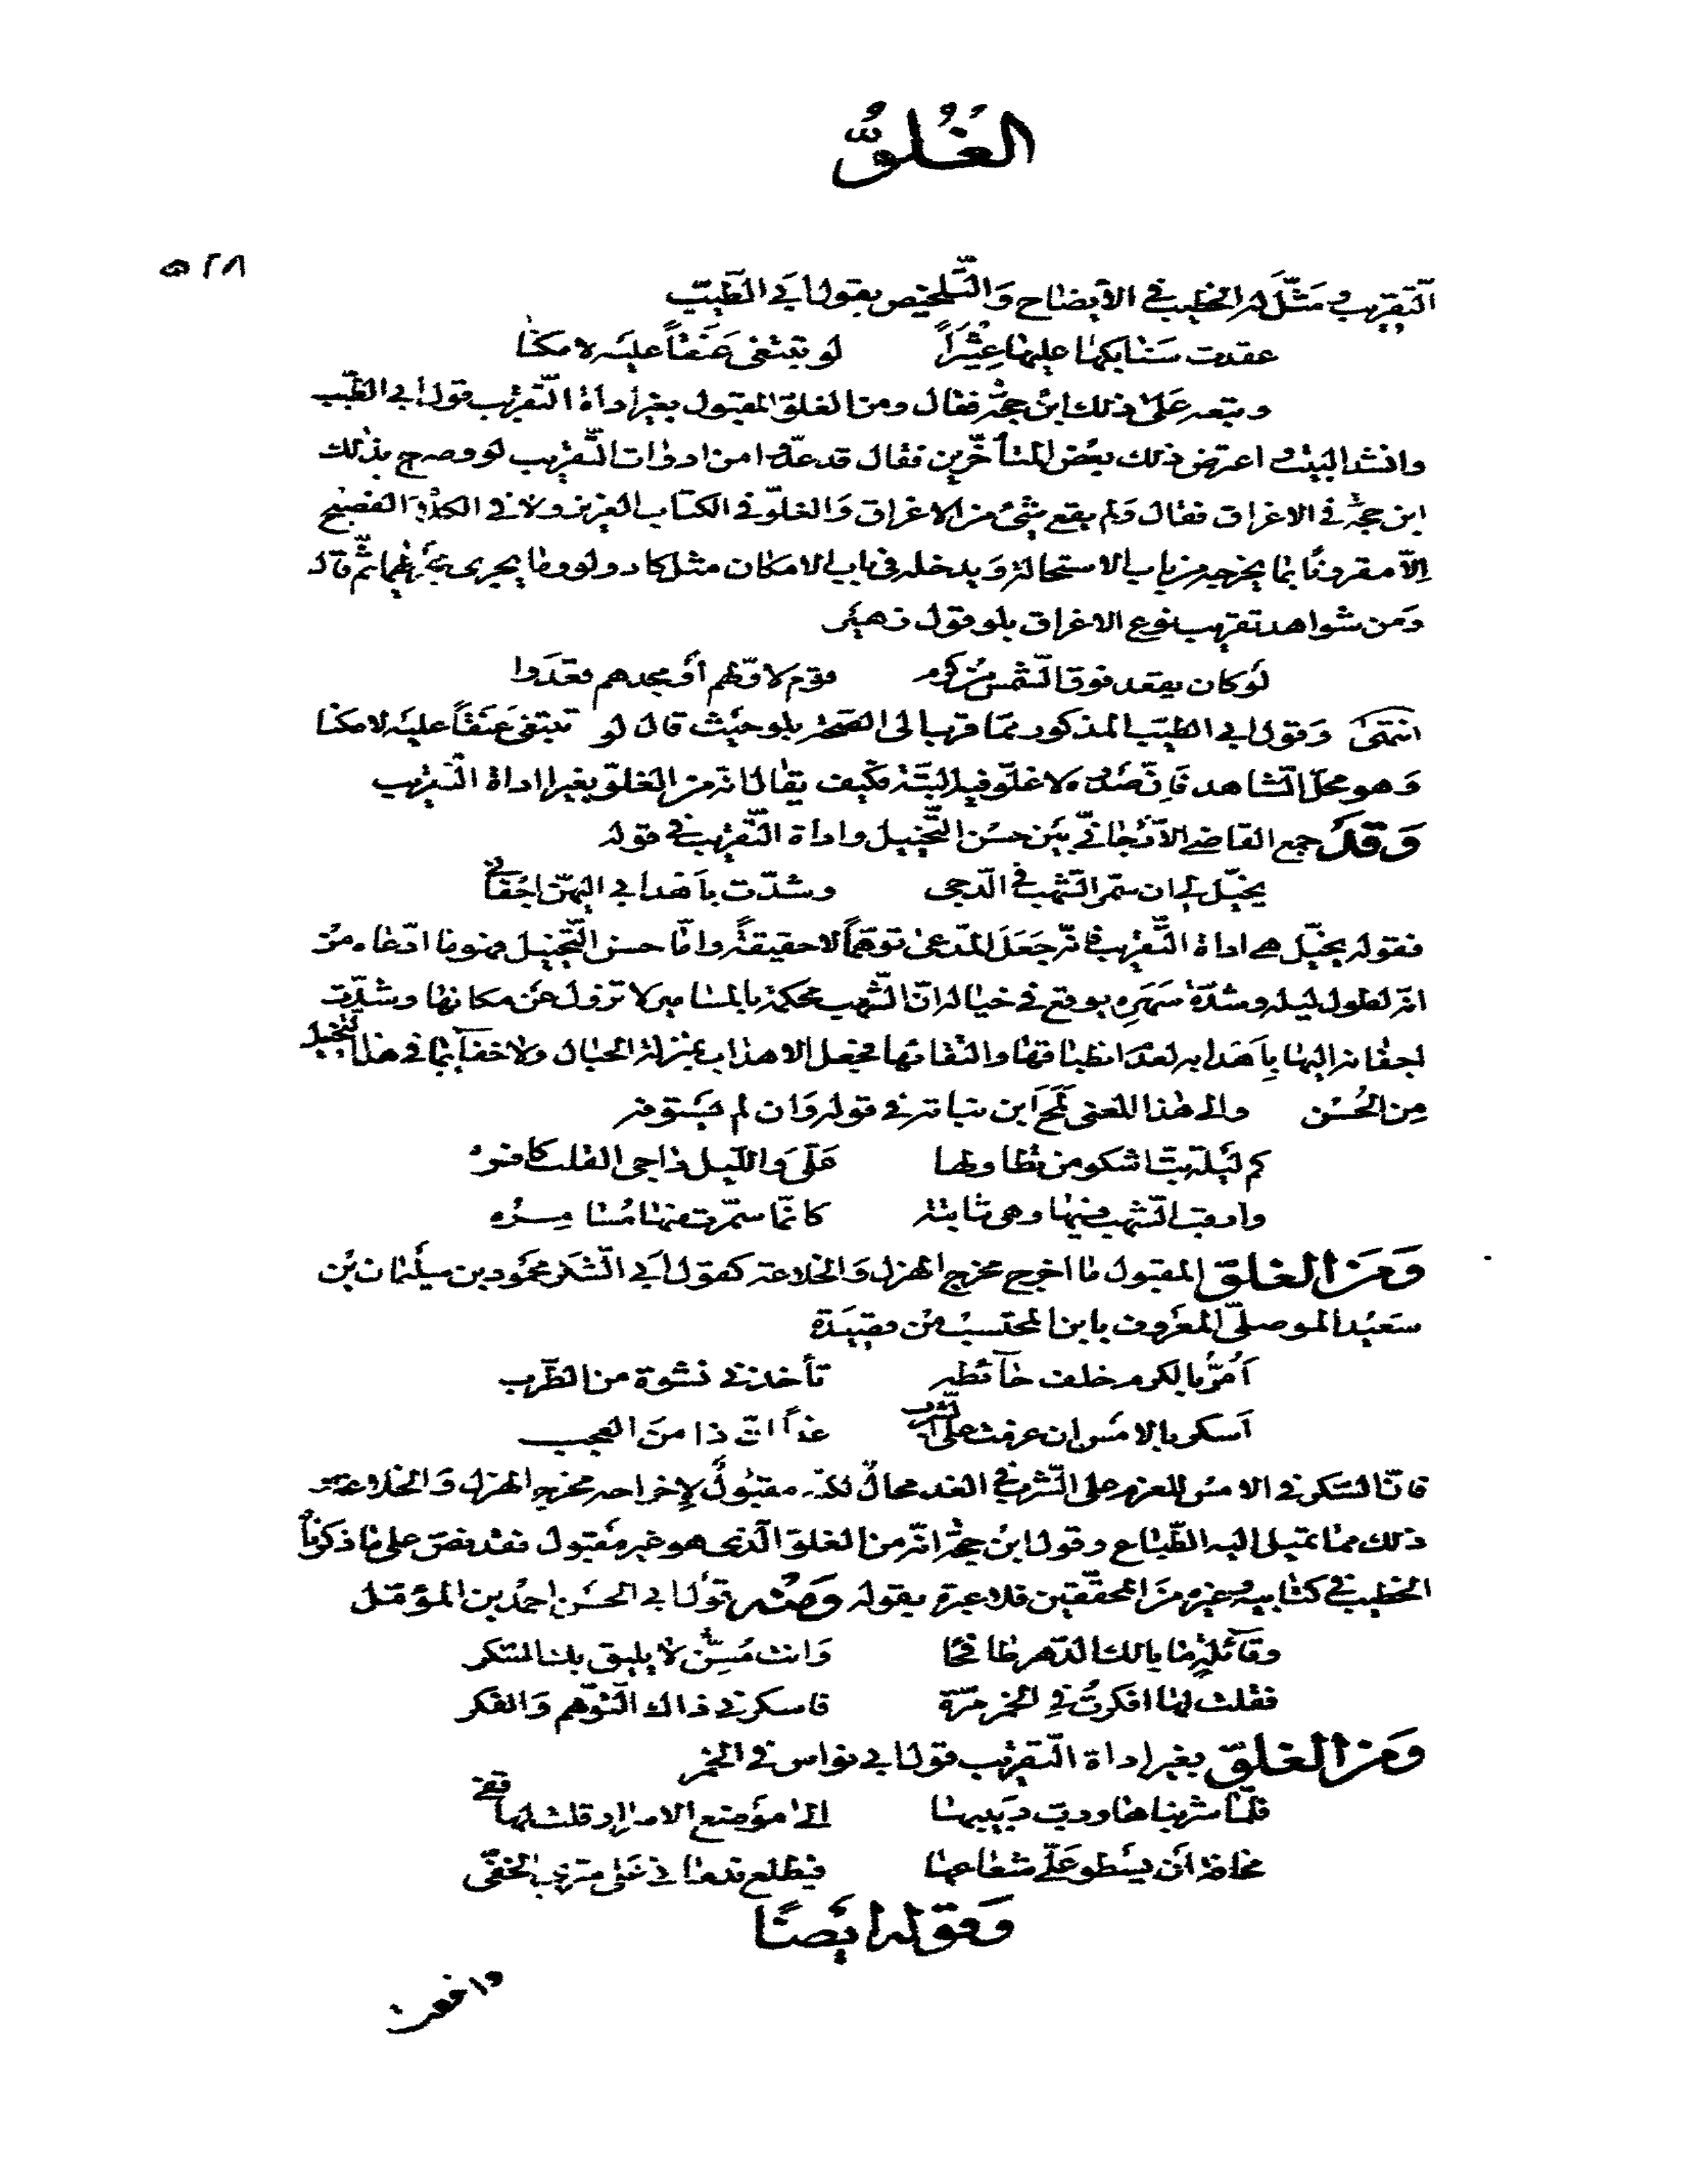 الغُلُوُّ
٥٢٨
التّقريب ومَثَّلَ له الخطيب في الأيضاح وَالتّلخيص بقول ابَي الطّيّب
عقدت سَنابكها عليها عِثْيَراً لو تبتغى عَنَقاً عليه لامكنا
وتبعه عَلىٰ ذلك ابْن حجّة فقال ومن الغلوّ المقبول بغير اداة التّقريب قول ابي الطّيّب
وانشد البيت واعترض ذلك بعْض المتأخّرين فقال قد عدّوا من ادوات التّقريب لو وصرح بذلك
ابن حجّة في الاغراق فقال وَلم يقع شئ من الاغراق وَالغلوّ في الكتاب العزيز ولا في الكلام الفصيح
اِلّا مقرونًا بما يخرجه من باب الاستحالة وَيدخله في باب الامكان مثل كاد ولو وما يجرى مجراهما ثمّ قال
وَمن شواهد تقريب نوع الاغراق بلو قول زهيْر
لوْ كان يقعد فوق الشّمس من كرم قوم لاوّلهم اوْ مجدهم قعَدوا
انتهىٰ وَقول ابي الطّيّب المذكور ممّا قرب الى الصّحّة بلو حيْث قال لو تبتغى عَنَقاً عليْه لامكنا
وَهو محلّ الشاهد فَاِنّ صدره لا غلوّ فيه البتّة فكيف يقال انّه من الغلوّ بغير اداة التّقريب
وَقَدْ جمع القاضى الأرّجانىّ بيْن حسْن التّخييل واداة التّقريب في قوله
يخيّل لي ان سمّر الشّهب في الدّجى وشدّت باَهدابي اليهنّ اجْفاني
فقوله يخيّل هى اداة التّقريب فانّه جَعَلَ المدّعىٰ توهّماً لا حقيقةً وامّا حسن التّخييل فهو ما ادّعاه منْ
انّه لطول ليله وشدّة سَهَرِه يوقع في خياله انّ الشّهب محكمة بالمسامير لا تزول عَن مكانها وشدّت
اجفانه اليها بِاَهدابه لعدَم انطباقها والتقائها فجعل الاهداب بمنزلة الحبال ولا خفآء بما في هذا التّخييل
مِن الحُسْن والى هٰذا المعنى لَمَحَ ابن نباته في قوله وَان لم يَستوفه
كم ليْلة بتّ اشكو من تطاولها عَلَىَّ وَاللّيل داجى القلب كافره
وارقب الشّهب فيها وهى ثابتة كانّما سمّرت منها مُسا مِرُه
وَمِنَ الغلوّ المقبول ما اخرج مخرج الهزل وَالخلاعة كقول ابَي الشّكر محمُود بن سليْمان بْن
سعيْد الموصلىّ المعْروف بابن المحتسب من قصيدَة
اَمُرُّ بالكرم خلف حآئطه تأخذنى نشوة من الطّرب
اَسكر بالامْس ان عزمت على الشرب غداً انّ ذا منَ العجب
فانّ السّكر في الامس للعزم على الشّرب في الغد محالٌ لكنّه مقبُولٌ لِإخراجه مخرج الهزل وَالخلاعة
ذلك مما تميل اليه الطّباع وقول ابْن حجّة انّه من الغلوّ الّذى هو غير مقْبول فقد نصّ على ما ذكرنا
الخطيب في كتابيه وغيره مِنَ المحقّقين فلا عبرة بقوله وَمِنْه قوْل ابي الحسَن احمْد بن المؤمّل
وقآئلةٍ ما بالك الدّهر طافحًا وَانت مُسِنّ لا يليق بك السّكر
فقلت لها افكرتُ في الخمر مرّة فاسكرنى ذاك التّوهّم وَالفكر
وَمِنَ الغلوّ بغير اداة التّقريب قول ابي نواس في الخمر
فلمّا شربناها ودبّ دَبيبها الىٰ موْضع الاسرار قلت لها قفى
مخافة انْ يسْطو علَىّ شعاعها فيطلع ندمانى عَلىٰ سرّى الخفىّ
وَقوله ايْضًا
واخفت